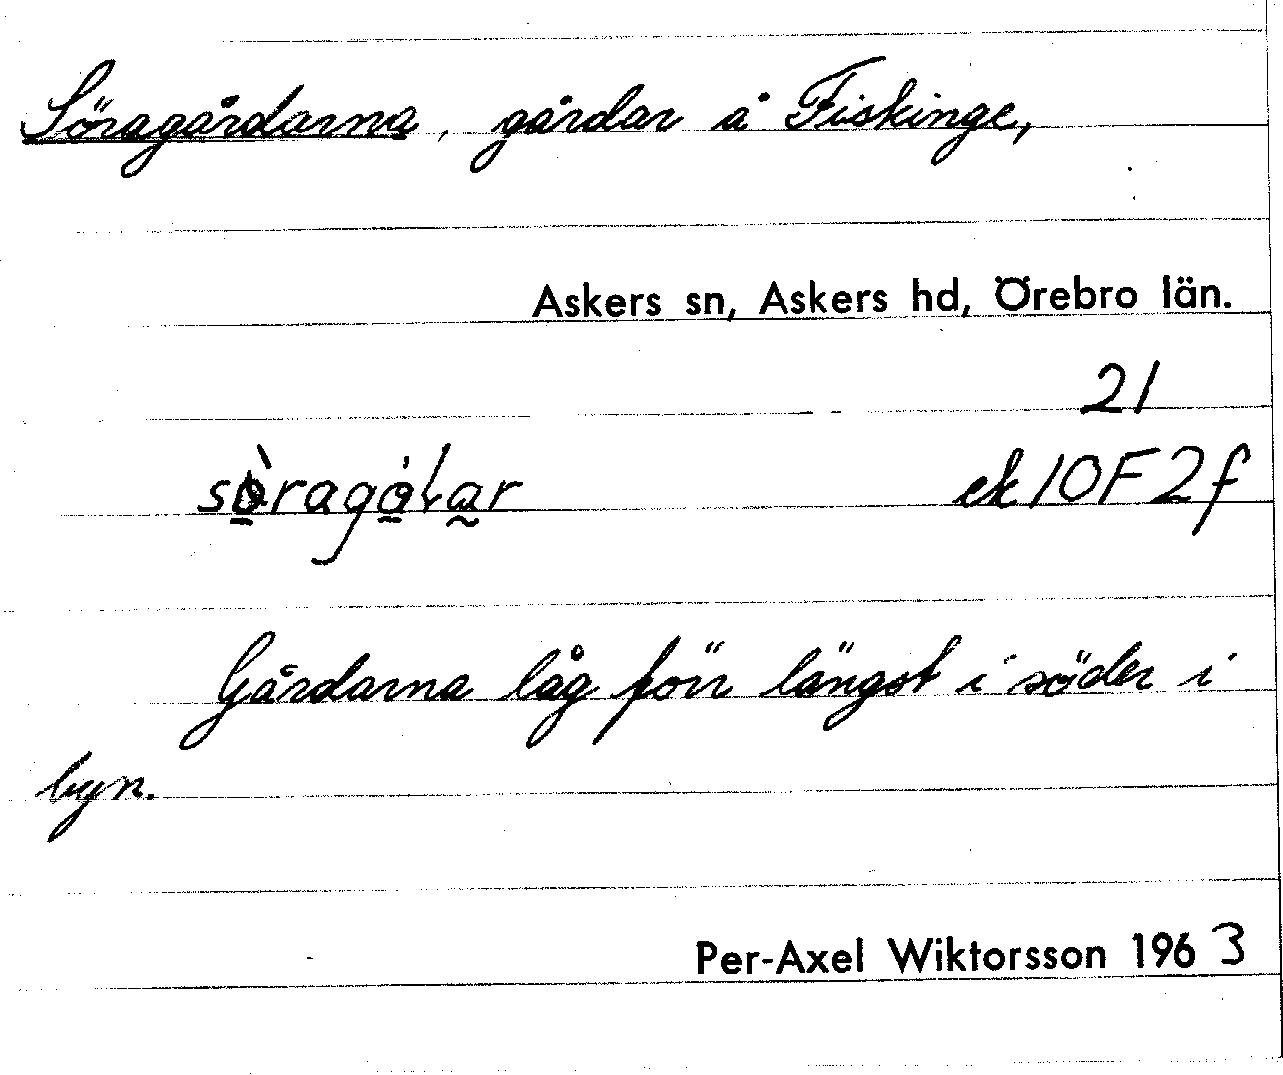 Söragårdarna, gårdar å Fiskinge,
Askers sn, Askers hd, Örebro län.
21
ek 10F2f
Gårdarna låg förr längst i söder i
byn.
Per-Axel Wiktorsson 1963